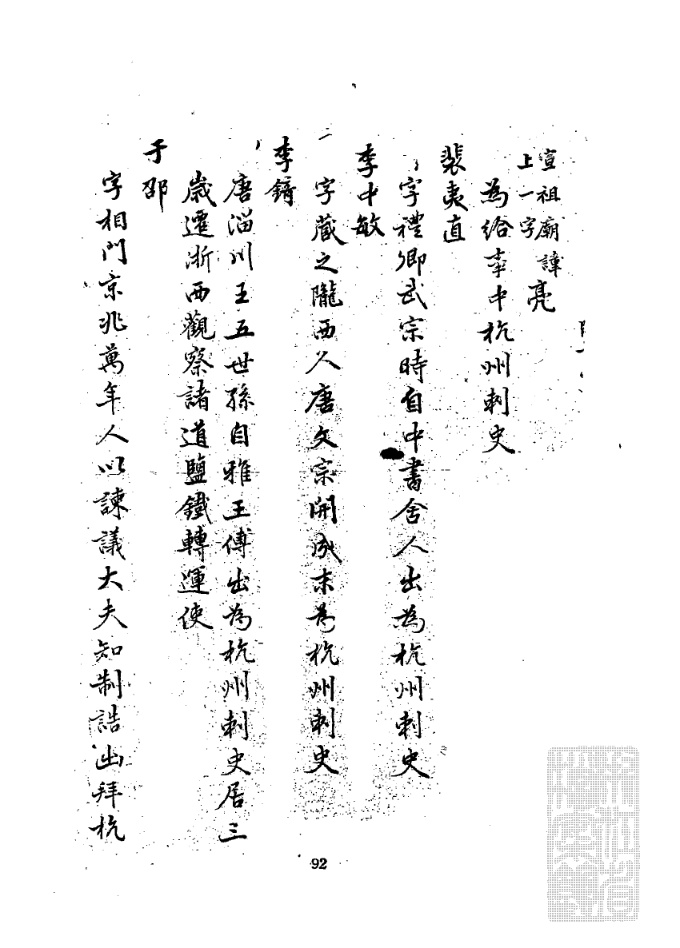 宣祖廟諱
上一字
亮
為給事中杭州刺史
裴夷直
字禮卿武宗時自中書舍人出為杭州刺史
李中敏
字蔵之隴西人唐文宗開成末為杭州刺史
李錡
唐淄川王五世孫自雅王傅出為杭州刺史居三
歲遷浙西觀察諸道鹽鐵轉運使
于邵
字相門京兆萬年人以諫議大夫知制誥出拜杭
92